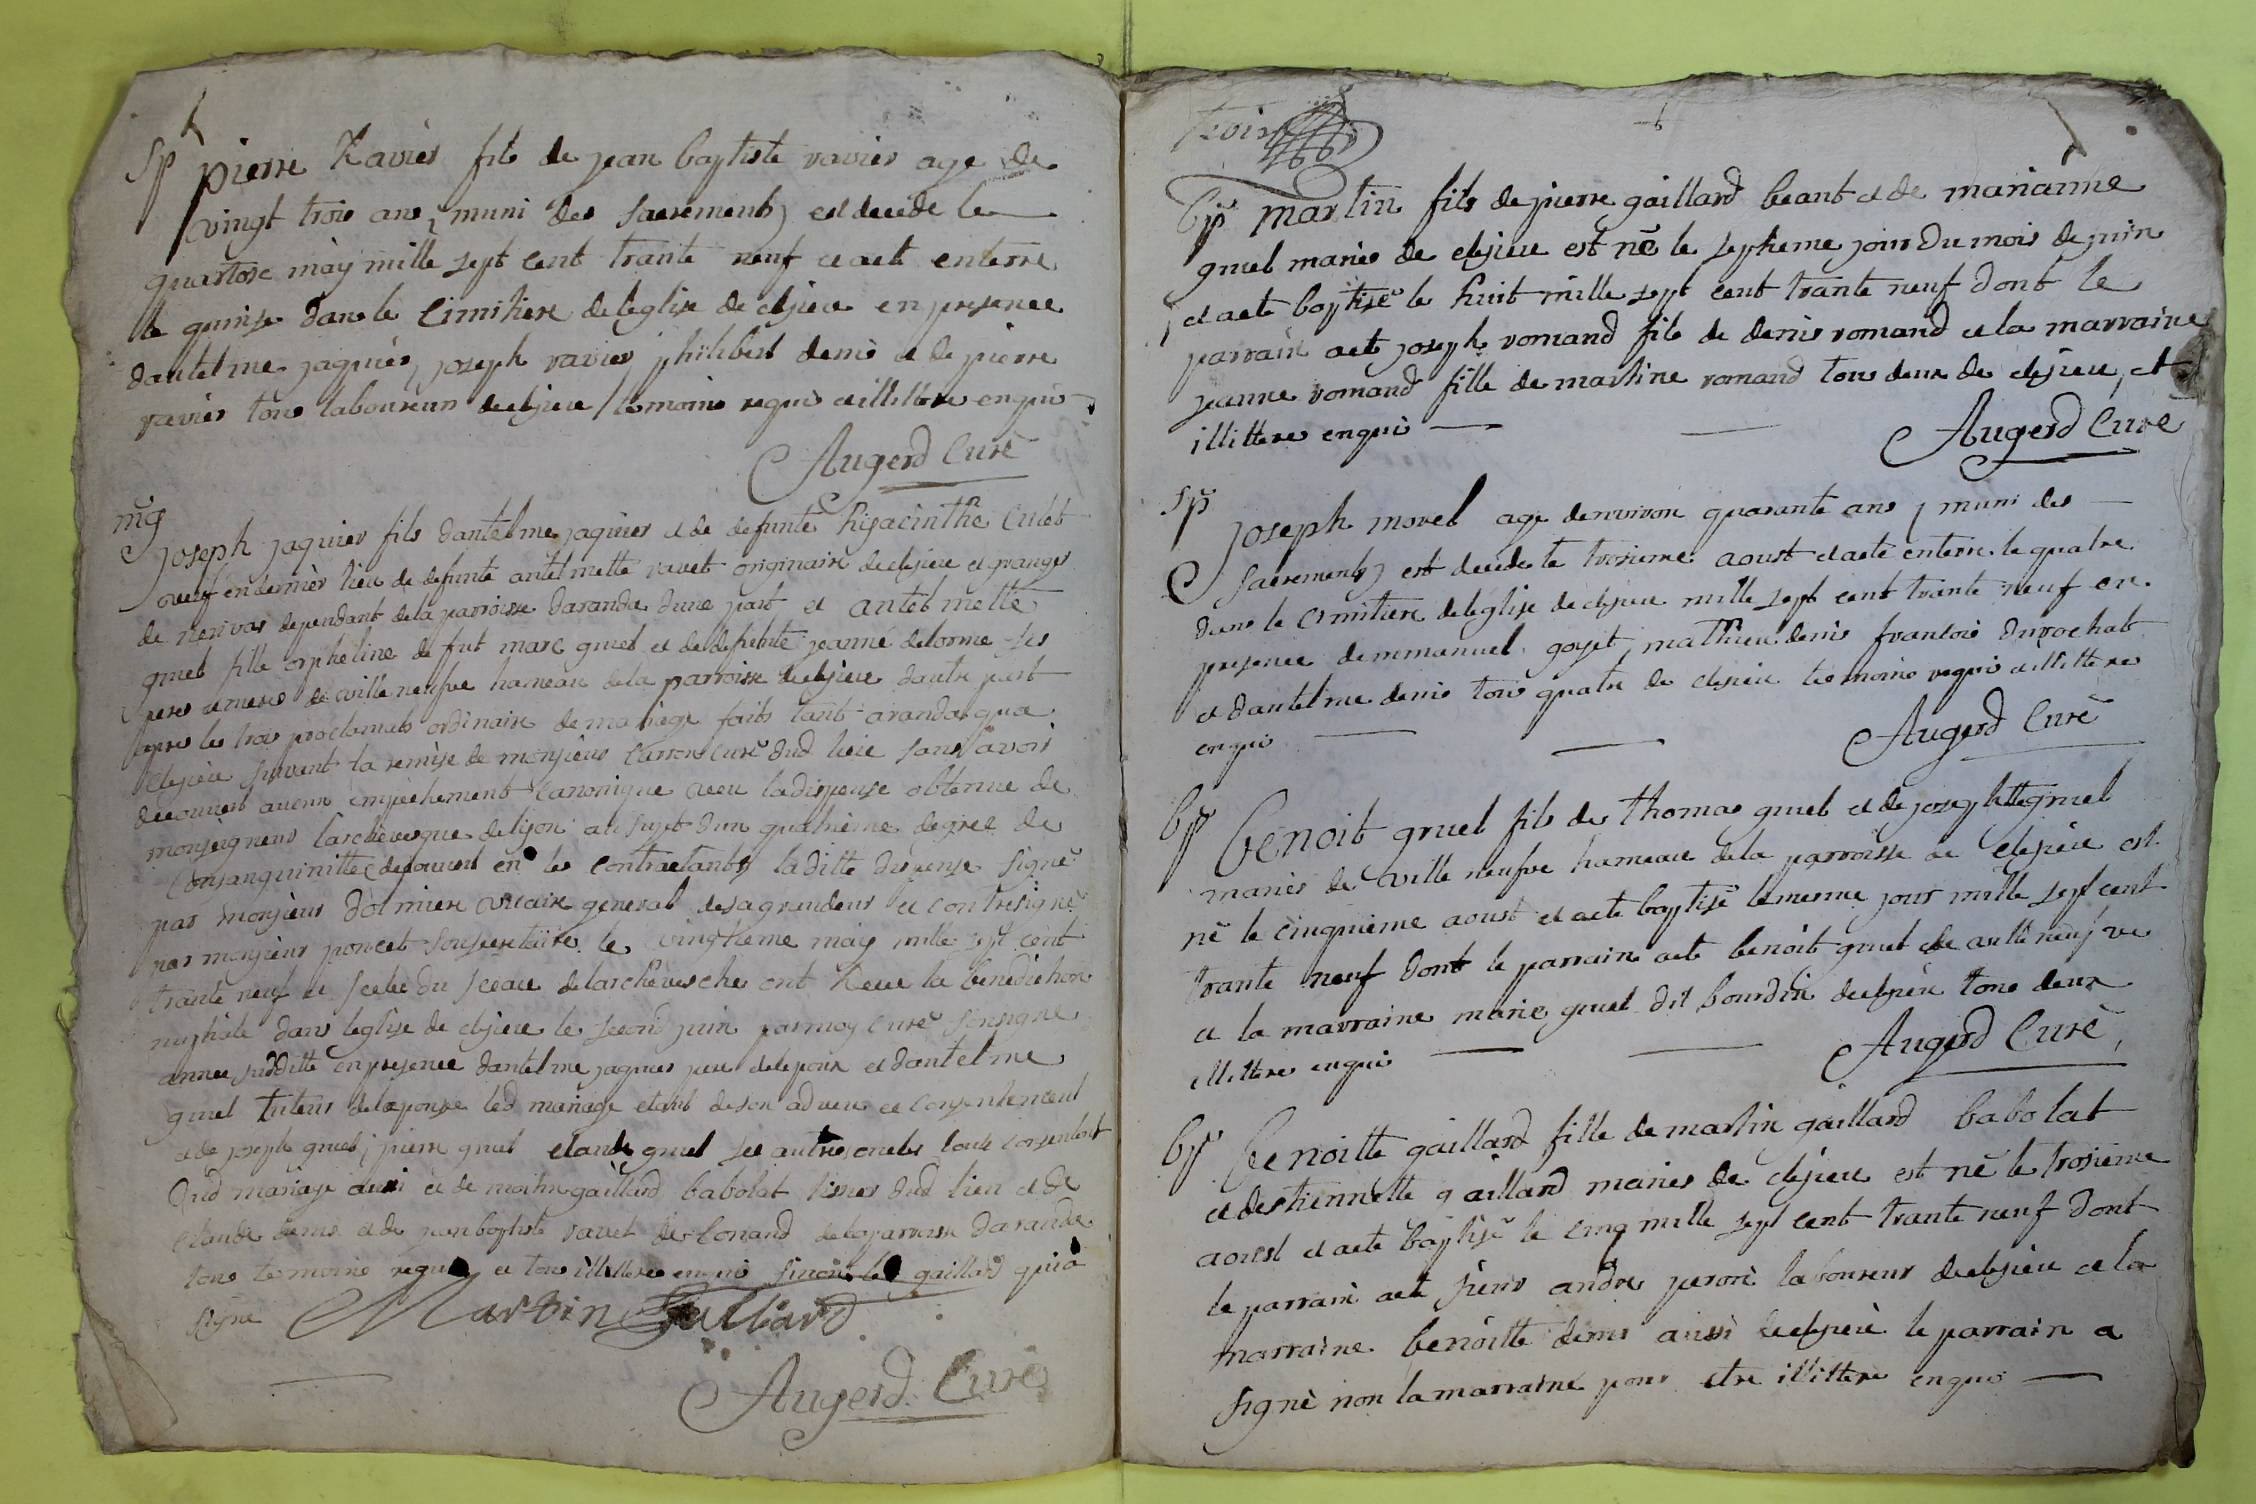 Sp pierre Ravier fils de jean baptiste ravier age de
vingt trois ans, muni des sacrements est decede le
quartose may mille sept cent trante neuf et aete enterre
le quinse dans le cimitiere de leglise de clejieu en presence
dantelme jaquier, joseph ravier philibert denis et de pierre
ravier tous laboureurs de clejieu temoins requis et illittere enquis
Augerd Curé
mg
joseph jaquier fils dantelme jaquier et de defunte hyacinthe Culet
veuf en dernier lieu de defunte antelmette ravet originaire de clejieu et granger
de dependant de la parroisse daranda dune part et antelmette
gruel fille orpheline de fut marc gruel et de defunte jeanne delorme ses
peres et meres de ville neufve hameau de la parroisse de clejieu dautre part
apres les trois proclamats ordinaire de mariage faits tant aranda qua
Clejieu suivant la remise de monsieur Carron curé dud lieu sans avoir
decouvert aucun empechement canonique veu la dispense obtenue de
monseigneur larchevesque de lyon au sujet dun quatrieme degree de
consanguinitte decouvert en les contractants laditte dispense signé
par monsieur dolmiere vicaire general de sa grandeur et contresigné
par monsieur poncet sousecretaire le vingtieme may mille sept cent
trante neuf et scelé du sceau de larcheveche ont Receu la benediction
nuptiale dans leglise de clejieu le second juin par moy curé sousigne
annee suditte en presence dantelme jaquier pere de lepoux et dantelme
gruel tuteur de lepouse led mariage etant de son adveu et consentement
et de joseph gruel, pierre gruel claude gruel ses autres oncles touts consentant
dud mariage aussi et de martin gaillard babolat dud lieu et de
claude denis et de jean baptiste ravet de Conand de la parroisse daranda
tous temoins requis et tous illittere enquis sinon le gaillard qui a
signe Martin Gailliard
Augerd Curé
trois
bp martin fils de pierre gaillard beant et de marianne
gruel maries de clejieu est né le septieme jour du mois de juin
et aete baptisé le huit mille sept cent trante neuf dont le
parrain aete joseph romand fils de denis romand et la marraine
jeanne romand fille de martine romand tous deux de clejieu, et
illittere enquis
Augerd Curé
Sp
joseph morel age denviron quarante ans, muni des
sacrements est decede le troisieme aoust et aete enterre le quatre
dans le cimitiere de leglise de clejieu mille sept cent trante neuf en
presence demmanuel goyet, mathieu denis francois durochat
et dantelme denis tous quatre de clejieu temoins requis et illittere
enquis
Augerd Curé
bp benoit gruel fils de thomas gruel et de josephtte gruel
maries de ville neufve hameau de la parroisse de clejieu est
né le cinquieme aoust et aete baptisé le mesme jour mille sept cent
trante neuf dont le parrain aete benoit gruel de ville neufve
et la marraine marie gruel dit bourdin de clejieu tous deux
illittere enquis
Augerd Curé
bp benoitte gaillard fille de martin gaillard babolat
et destiennette gaillard maries de clejieu est né le troisieme
aoust et aete baptisé le cinq mille sept cent trante neuf dont
le parrain aete sieur andre peron laboureur de clejieu et la
marraine benoitte denis aussi de clejieu le parrain a
signé non la marraine pour etre illittere enquis